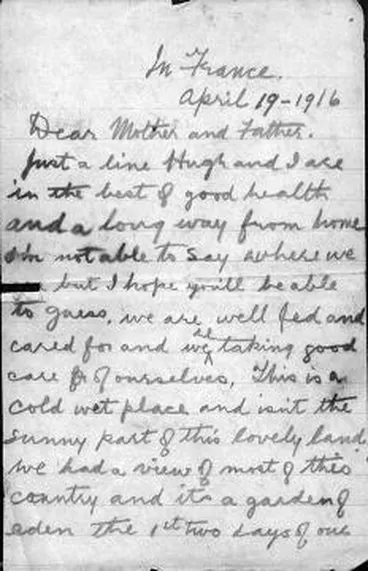 In France.
April 19-1916
Dear Mother and Father.
Just a line Hugh and I are
in the best of good health
and a long way from home
I'm not able to say where we
but I hope you'll be able
to guess, we are well fed and
cared for and we're taking good
care of ourselves, This is a
cold wet place and isn't the
sunny part of this lovely land
we had a view of most of this
country and its a garden of
eden the 1st two days of our